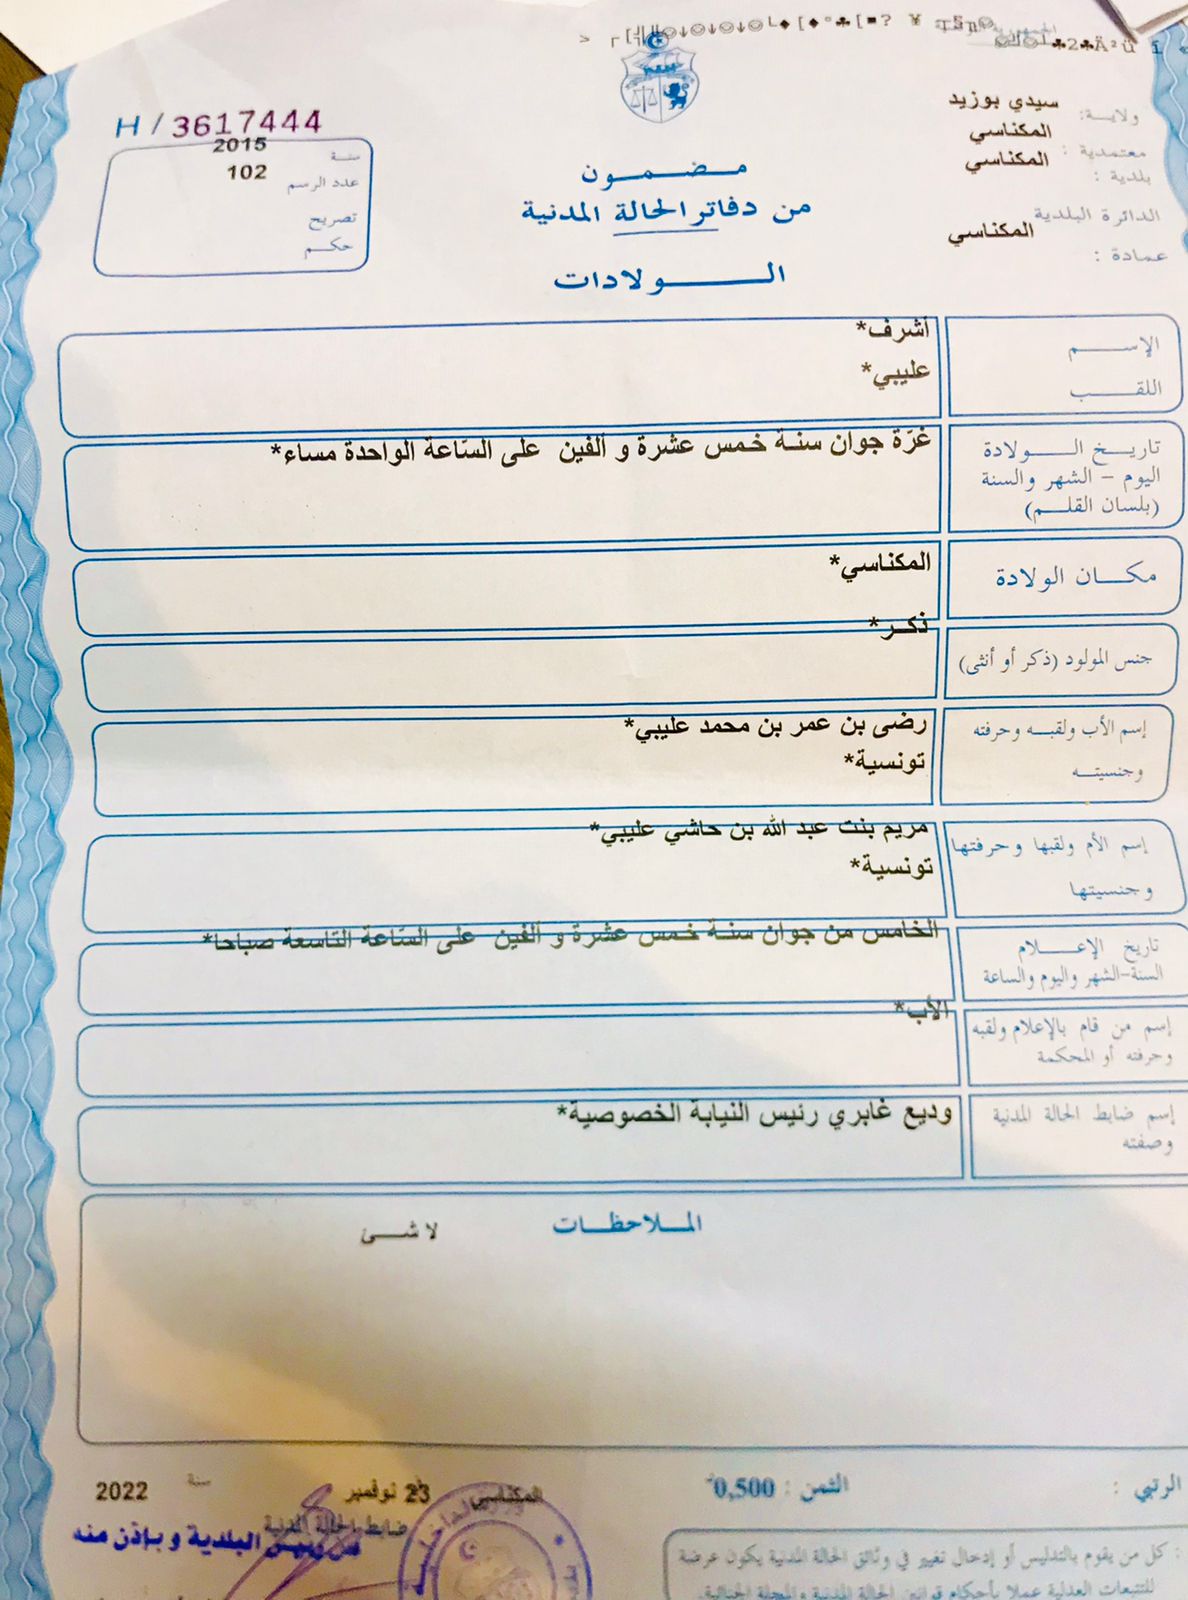 الجمهورية
ولاية: سيدي بوزيد
معتمدية: المكناسي
بلدية: المكناسي
الدائرة البلدية
عمادة: المكناسي
H / 3617444
سنة 2015
عدد الرسم 102
تصريح
حكم
مضمون
من دفاتر الحالة المدنية
الولادات
الإسم أشرف*
اللقب عليبي*
تاريخ الولادة غرّة جوان سنة خمس عشرة و ألفين على السّاعة الواحدة مساء*
اليوم - الشهر والسنة
(بلسان القلم)
مكان الولادة المكناسي*
جنس المولود (ذكر أو أنثى) ذكر*
إسم الأب ولقبه وحرفته رضى بن عمر بن محمد عليبي*
وجنسيته تونسية*
إسم الأم ولقبها وحرفتها مريم بنت عبد الله بن حاشي عليبي*
وجنسيتها تونسية*
تاريخ الإعلام الخامس من جوان سنة خمس عشرة و ألفين على السّاعة التاسعة صباحا*
السنة-الشهر واليوم والساعة
إسم من قام بالإعلام ولقبه الأب*
وحرفته أو المحكمة
إسم ضابط الحالة المدنية وديع غابري رئيس النيابة الخصوصية*
وصفته
الملاحظات
لا شئ
الرتبي :
الثمن : 0,500د
المكناسي 23 نوفمبر سنة 2022
ضابط الحالة المدنية
عن رئيس البلدية و بإذن منه
كل من يقوم بالتدليس أو إدخال تغيير في وثائق الحالة المدنية يكون عرضة
للتتبعات العدلية عملا بأحكام قوانين الحالة المدنية والمجلة الجنائية.